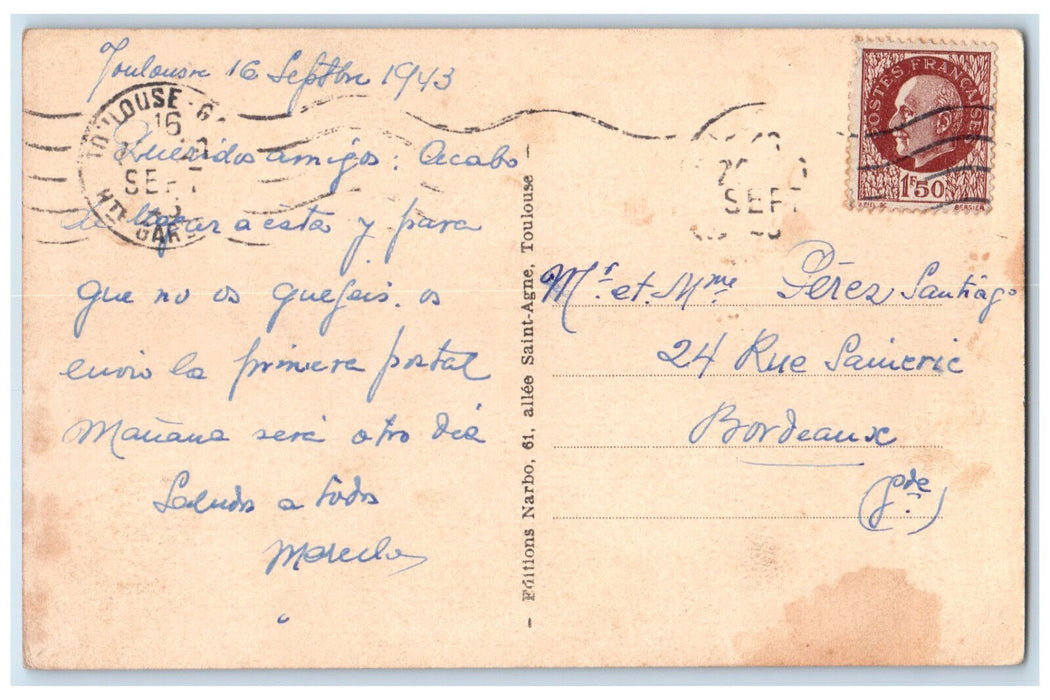 Toulouse 16 Septbre 1943
Queridos amigos: Acabo
de llegar a esta y para
que no os quejeis. os
envio la primera postal
Mañana será otro dia
Saludos a todos
TOULOUSE-G
16
SEPT
HTE GAR
- Editions Narbo, 61, allée Saint-Agne, Toulouse -
POSTES FRANÇAISES
1F50
BERSIER
SEPT
Mr. et. Mme Pérez Santiago
24 Rue Saineric
Bordeaux
(Gde)